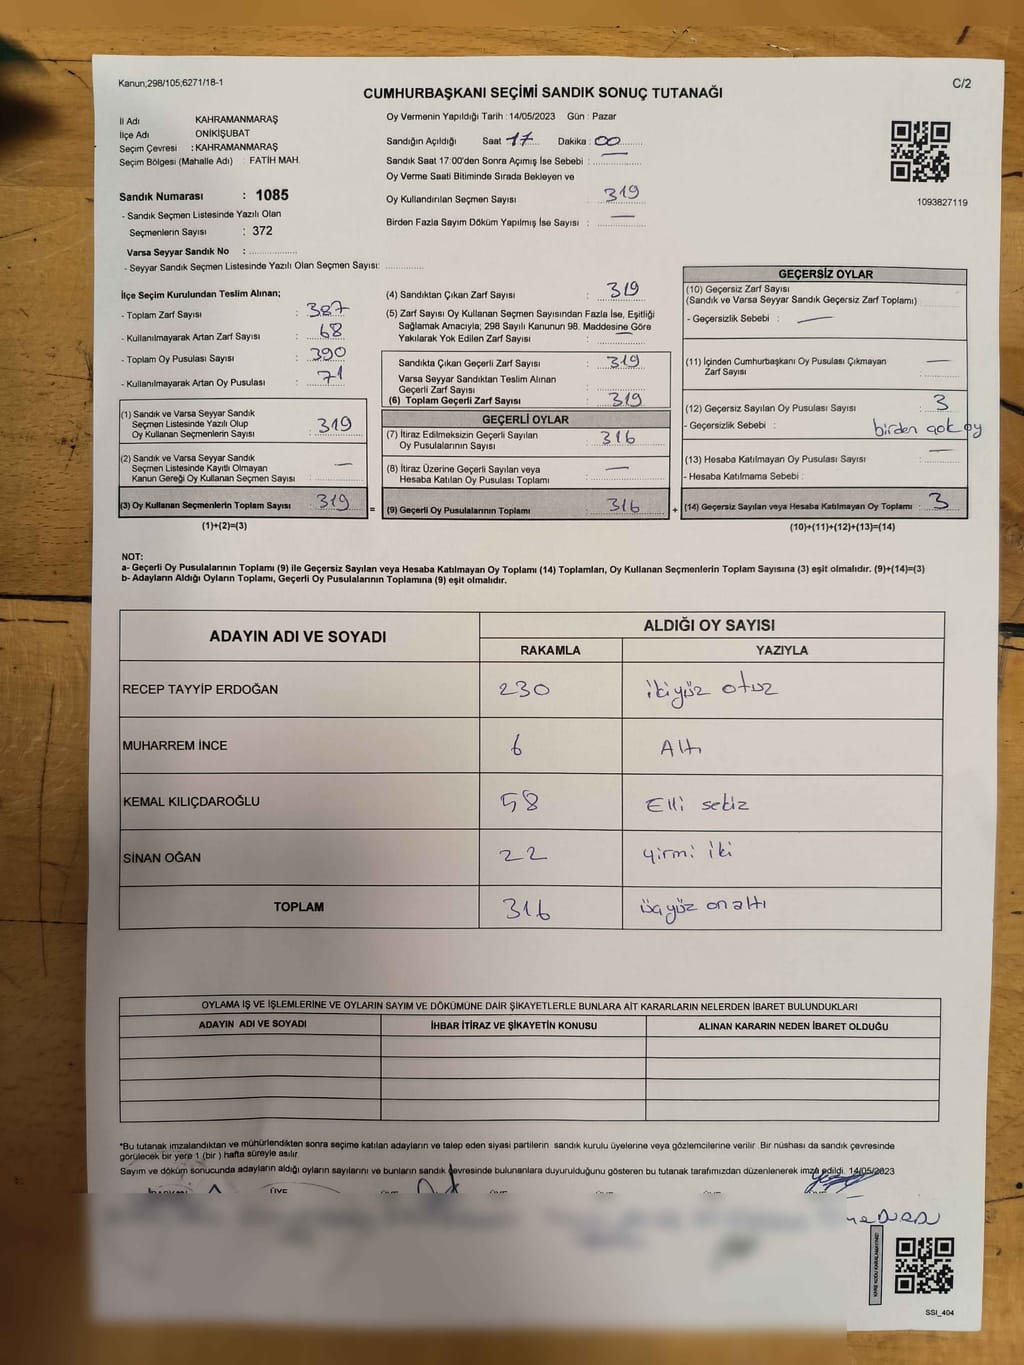 Kanun;298/105,6271/18-1
C/2
CUMHURBAŞKANI SEÇİMİ SANDIK SONUÇ TUTANAĞI
İl Adı KAHRAMANMARAŞ
İlçe Adı ONİKİŞUBAT
Seçim Çevresi : KAHRAMANMARAŞ
Seçim Bölgesi (Mahalle Adı) : FATİH MAH.
Sandık Numarası : 1085
- Sandık Seçmen Listesinde Yazılı Olan
Seçmenlerin Sayısı : 372
Varsa Seyyar Sandık No :
- Seyyar Sandık Seçmen Listesinde Yazılı Olan Seçmen Sayısı:
Oy Vermenin Yapıldığı Tarih : 14/05/2023 Gün : Pazar
Sandığın Açıldığı Saat 17 Dakika : 00
Sandık Saat 17:00'den Sonra Açımış İse Sebebi : —
Oy Verme Saati Bitiminde Sırada Bekleyen ve
Oy Kullandırılan Seçmen Sayısı : 319
Birden Fazla Sayım Döküm Yapılmış İse Sayısı : —
1093827119
İlçe Seçim Kurulundan Teslim Alınan;
- Toplam Zarf Sayısı : 387
- Kullanılmayarak Artan Zarf Sayısı : 68
- Toplam Oy Pusulası Sayısı : 390
- Kullanılmayarak Artan Oy Pusulası : 71
(1) Sandık ve Varsa Seyyar Sandık
Seçmen Listesinde Yazılı Olup
Oy Kullanan Seçmenlerin Sayısı : 319
(2) Sandık ve Varsa Seyyar Sandık
Seçmen Listesinde Kayıtlı Olmayan
Kanun Gereği Oy Kullanan Seçmen Sayısı : —
(3) Oy Kullanan Seçmenlerin Toplam Sayısı : 319 =
(1)+(2)=(3)
(4) Sandıktan Çıkan Zarf Sayısı : 319
(5) Zarf Sayısı Oy Kullanan Seçmen Sayısından Fazla İse, Eşitliği
Sağlamak Amacıyla; 298 Sayılı Kanunun 98. Maddesine Göre
Yakılarak Yok Edilen Zarf Sayısı : —
Sandıkta Çıkan Geçerli Zarf Sayısı : 319
Varsa Seyyar Sandıktan Teslim Alınan
Geçerli Zarf Sayısı :
(6) Toplam Geçerli Zarf Sayısı : 319
GEÇERLİ OYLAR
(7) İtiraz Edilmeksizin Geçerli Sayılan
Oy Pusulasının Sayısı : 316
(8) İtiraz Üzerine Geçerli Sayılan veya
Hesaba Katılan Oy Pusulası Toplamı : —
(9) Geçerli Oy Pusulalarının Toplamı : 316 +
GEÇERSİZ OYLAR
(10) Geçersiz Zarf Sayısı
(Sandık ve Varsa Seyyar Sandık Geçersiz Zarf Toplamı)
- Geçersizlik Sebebi : —
(11) İçinden Cumhurbaşkanı Oy Pusulası Çıkmayan
Zarf Sayısı : —
(12) Geçersiz Sayılan Oy Pusulası Sayısı : 3
- Geçersizlik Sebebi : birden çok oy
(13) Hesaba Katılmayan Oy Pusulası Sayısı : —
- Hesaba Katılmama Sebebi :
(14) Geçersiz Sayılan veya Hesaba Katılmayan Oy Toplamı : 3
(10)+(11)+(12)+(13)=(14)
NOT:
a- Geçerli Oy Pusulalarının Toplamı (9) ile Geçersiz Sayılan veya Hesaba Katılmayan Oy Toplamı (14) Toplamları, Oy Kullanan Seçmenlerin Toplam Sayısına (3) eşit olmalıdır. (9)+(14)=(3)
b- Adayların Aldığı Oyların Toplamı, Geçerli Oy Pusulalarının Toplamına (9) eşit olmalıdır.
ADAYIN ADI VE SOYADI ALDIĞI OY SAYISI
RAKAMLA YAZIYLA
RECEP TAYYİP ERDOĞAN 230 ikiyüz otuz
MUHARREM İNCE 6 Altı
KEMAL KILIÇDAROĞLU 58 Elli sekiz
SİNAN OĞAN 22 yirmi iki
TOPLAM 316 üçyüz onaltı
OYLAMA İŞ VE İŞLEMLERİNE VE OYLARIN SAYIM VE DÖKÜMÜNE DAİR ŞİKAYETLERLE BUNLARA AİT KARARLARIN NELERDEN İBARET BULUNDUKLARI
ADAYIN ADI VE SOYADI İHBAR İTİRAZ VE ŞİKAYETİN KONUSU ALINAN KARARIN NEDEN İBARET OLDUĞU
*Bu tutanak imzalandıktan ve mühürlendikten sonra seçime katılan adayların ve talep eden siyasi partilerin sandık kurulu üyelerine veya gözlemcilerine verilir. Bir nüshası da sandık çevresinde
görülecek bir yere 1 (bir ) hafta süreyle asılır.
Sayım ve döküm sonucunda adayların aldığı oyların sayılarını ve bunların sandık çevresinde bulunanlara duyurulduğunu gösteren bu tutanak tarafımızdan düzenlenerek imza edildi. 14/05/2023
ÜYE
SSI_404